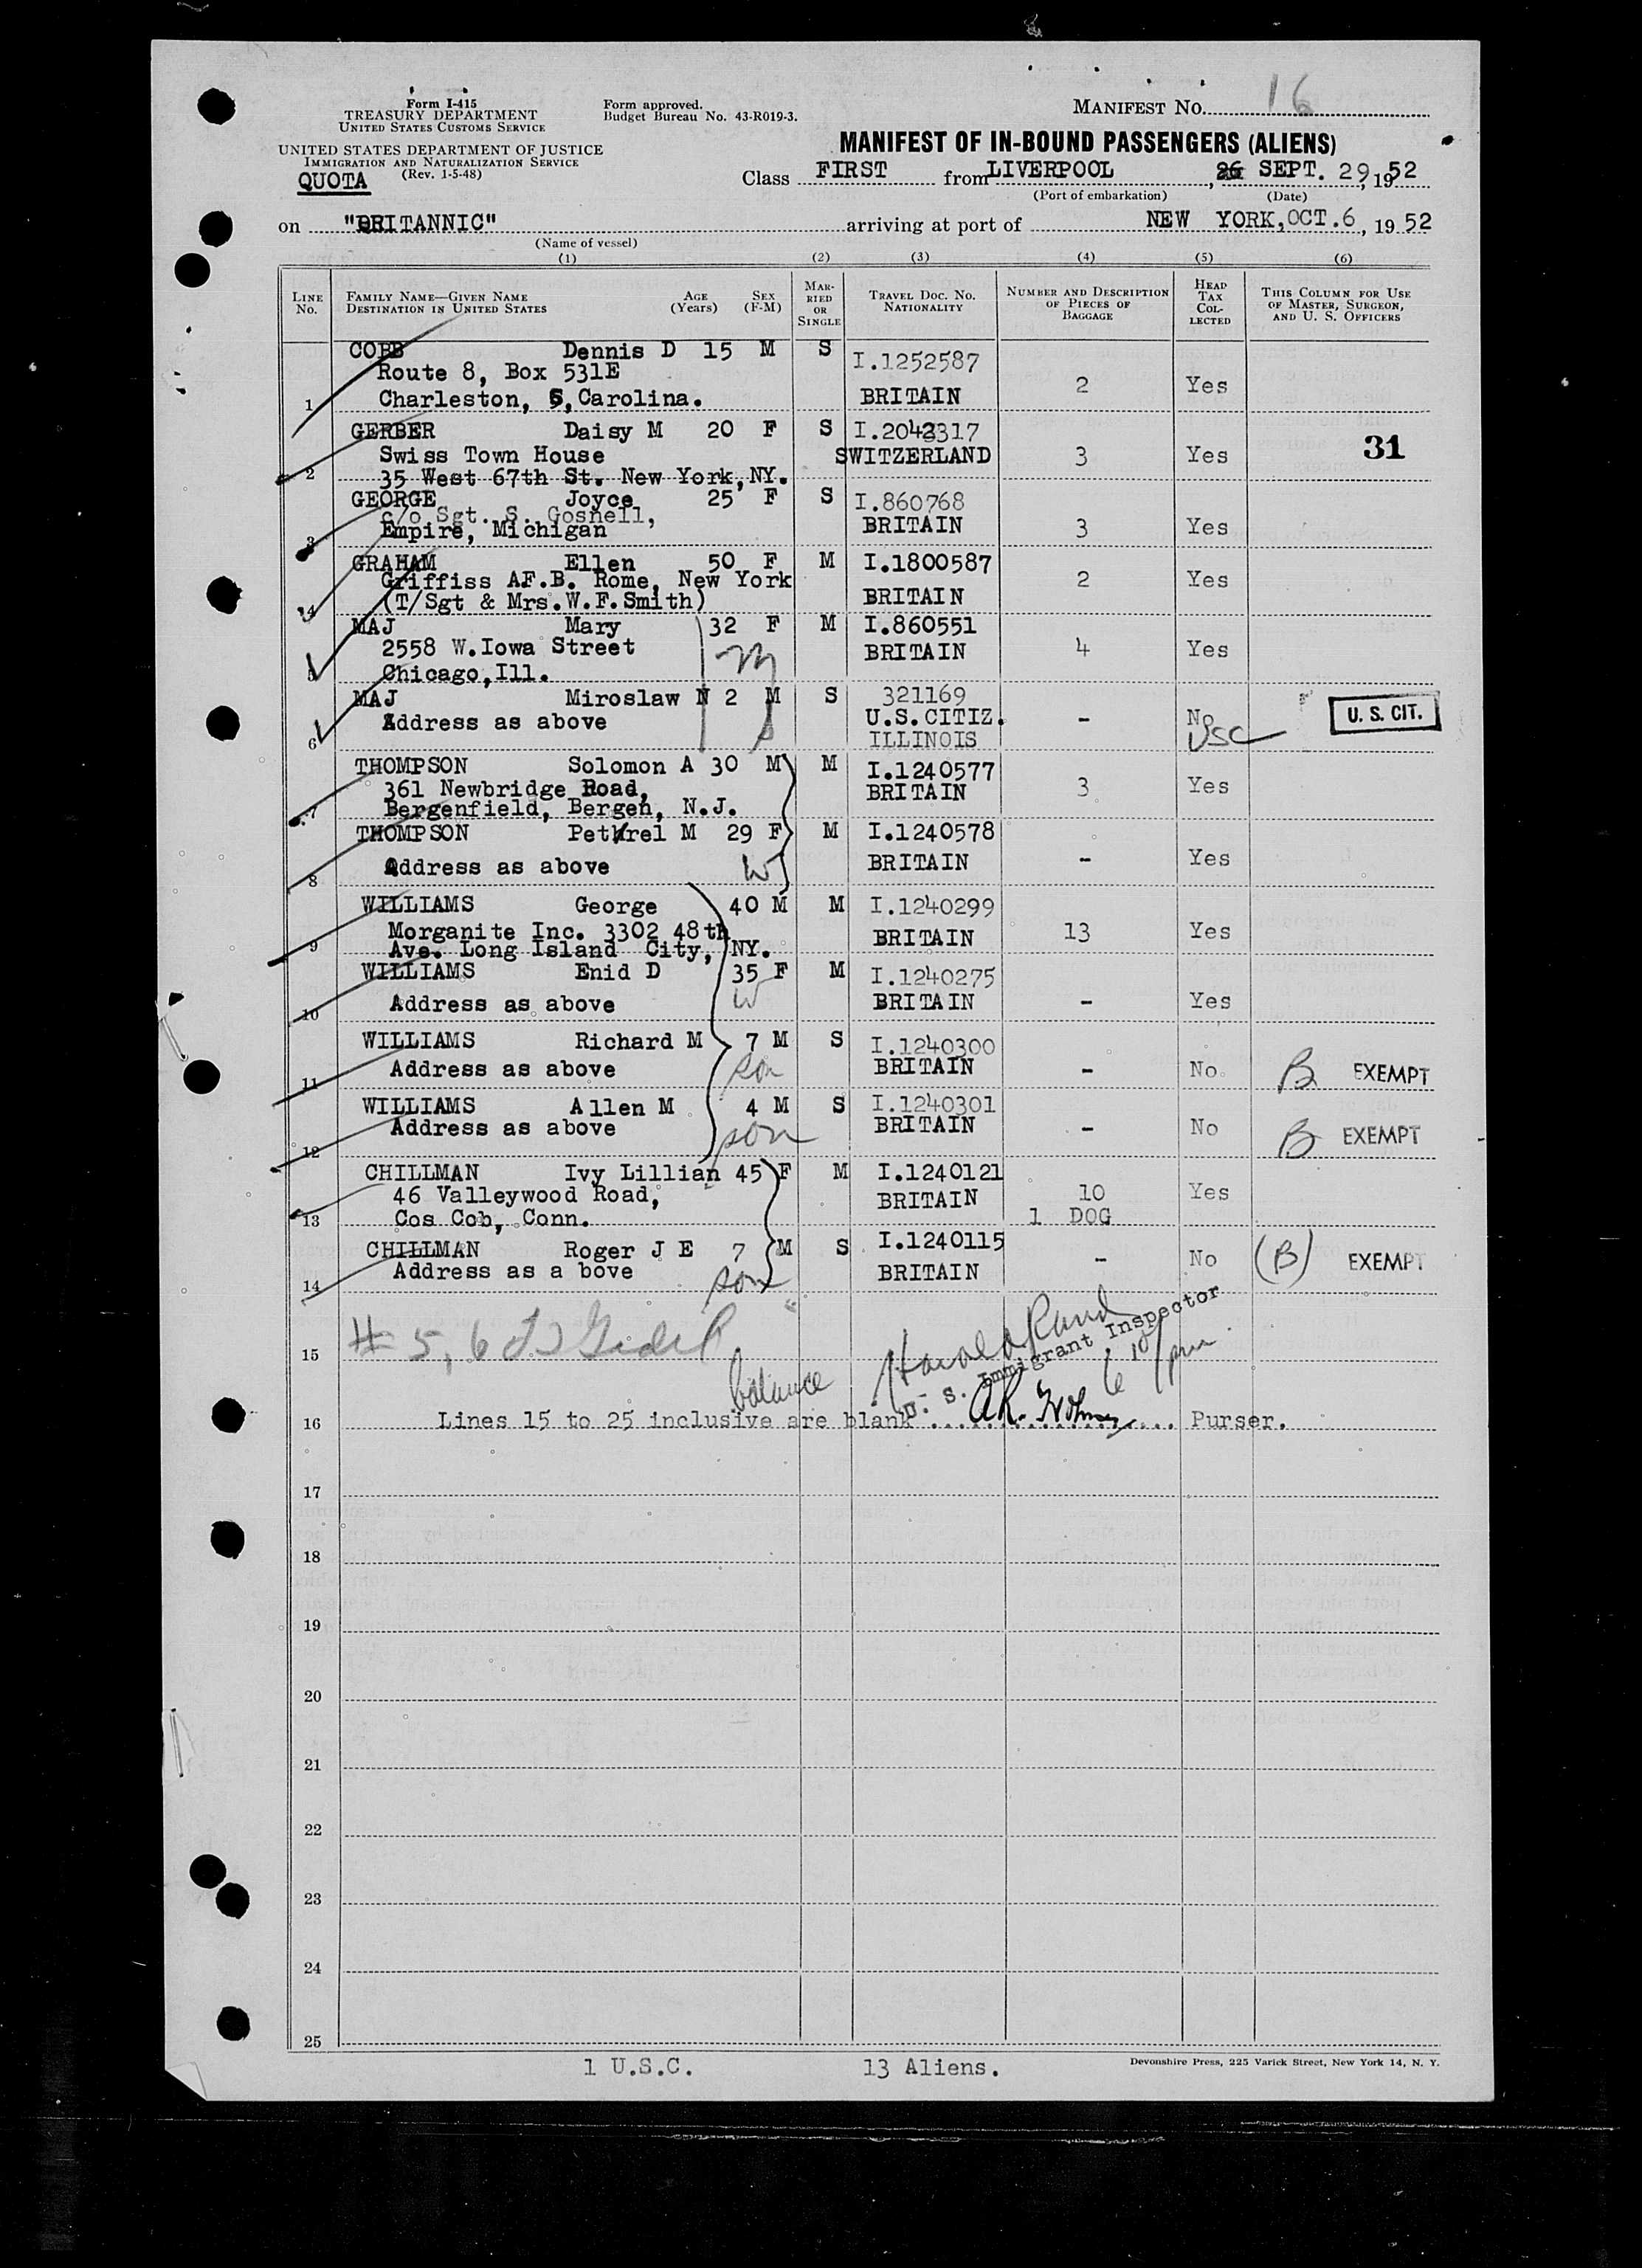 Form I-415
TREASURY DEPARTMENT
UNITED STATES CUSTOMS SERVICE
UNITED STATES DEPARTMENT OF JUSTICE
IMMIGRATION AND NATURALIZATION SERVICE
(Rev. 1-5-48)
QUOTA
Form approved.
Budget Bureau No. 43-R019-3.
MANIFEST NO. 16
MANIFEST OF IN-BOUND PASSENGERS (ALIENS)
Class FIRST from LIVERPOOL, 26 SEPT. 29, 1952
(Port of embarkation) (Date)
on "BRITANNIC" arriving at port of NEW YORK, OCT. 6, 1952
(Name of vessel)
(1) (2) (3) (4) (5) (6)
LINE No. FAMILY NAME—GIVEN NAME DESTINATION IN UNITED STATES AGE (Years) SEX (F-M) MARRIED OR SINGLE TRAVEL DOC. NO. NATIONALITY NUMBER AND DESCRIPTION OF PIECES OF BAGGAGE HEAD TAX COLLECTED THIS COLUMN FOR USE OF MASTER, SURGEON, AND U. S. OFFICERS
COBB Dennis D 15 M S I.1252587
Route 8, Box 531E
1 Charleston, S, Carolina. BRITAIN 2 Yes
GERBER Daisy M 20 F S I.2042317
Swiss Town House SWITZERLAND 3 Yes 31
2 35 West 67th St. New York, NY.
GEORGE Joyce 25 F S I.860768
c/o Sgt. S. Gosnell,
3 Empire, Michigan BRITAIN 3 Yes
GRAHAM Ellen 50 F M I.1800587
Griffiss AF.B. Rome, New York 2 Yes
4 (T/Sgt & Mrs.W.F.Smith) BRITAIN
MAJ Mary 32 F M I.860551
2558 W.Iowa Street BRITAIN 4 Yes
5 Chicago,Ill. m
MAJ Miroslaw N 2 M S 321169
Address as above U.S.CITIZ. - No U. S. CIT.
6 s ILLINOIS USC
THOMPSON Solomon A 30 M M I.1240577
361 Newbridge Road, BRITAIN 3 Yes
7 Bergenfield, Bergen, N.J.
THOMPSON Pethrel M 29 F M I.1240578
8 Address as above W BRITAIN - Yes
WILLIAMS George 40 M M I.1240299
Morganite Inc. 3302 48th BRITAIN 13 Yes
9 Ave. Long Island City, NY.
WILLIAMS Enid D 35 F M I.1240275
10 Address as above W BRITAIN - Yes
WILLIAMS Richard M 7 M S I.1240300
11 Address as above son BRITAIN - No B EXEMPT
WILLIAMS Allen M 4 M S I.1240301
12 Address as above son BRITAIN - No B EXEMPT
CHILLMAN Ivy Lillian 45 F M I.1240121
46 Valleywood Road, BRITAIN 10 Yes
13 Cos Cob, Conn. 1 DOG
CHILLMAN Roger J E 7 M S I.1240115
14 Address as a bove son BRITAIN - No (B) EXEMPT
15 # 5, 6
balance Harold Rand
U. S. Immigrant Inspector
16 Lines 15 to 25 inclusive are blank Purser.
17
18
19
20
21
22
23
24
25
1 U.S.C. 13 Aliens. Devonshire Press, 225 Varick Street, New York 14, N. Y.